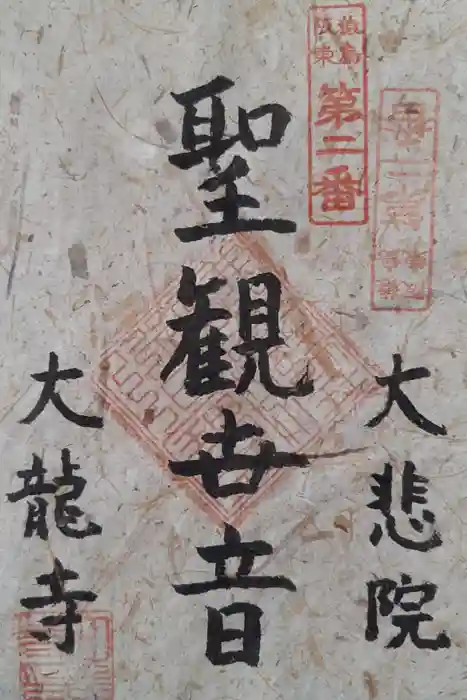 猿島
阪東
第二番
大悲院
聖観世音
大龍寺